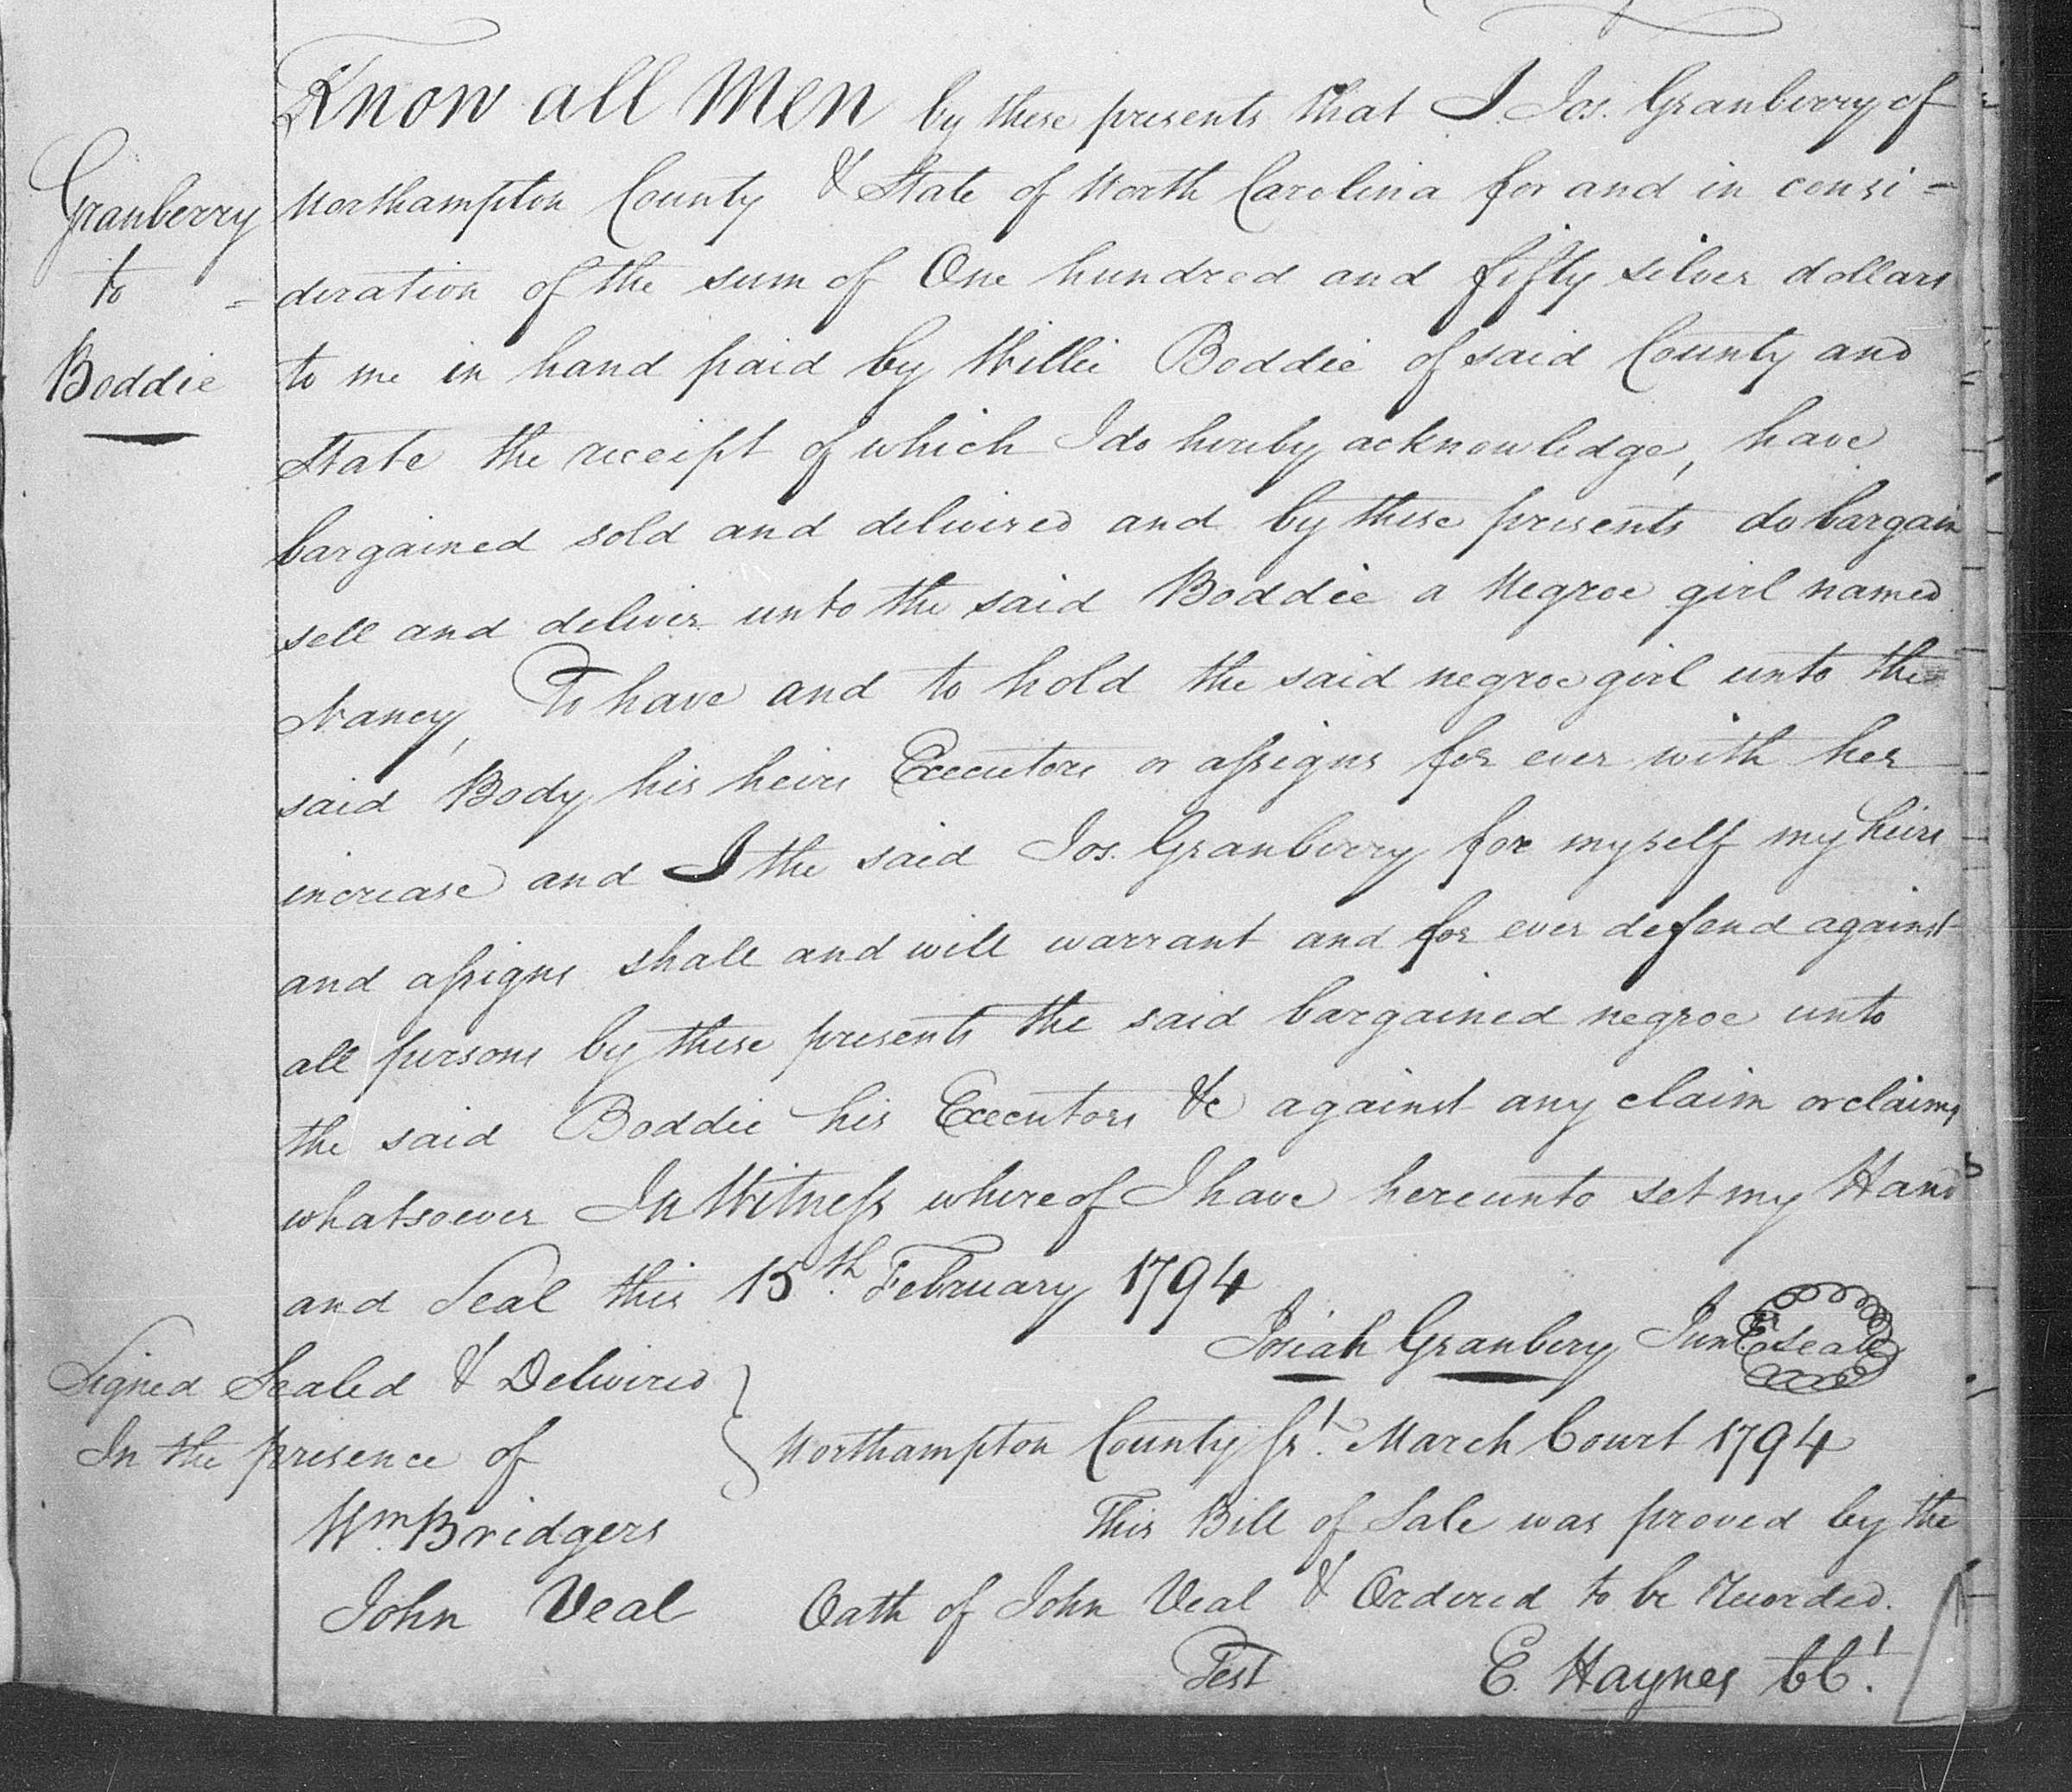 Know all Men by these presents that I Jos. Granberry of
Granberry
to
Boddie
Northampton County & State of North Carolina for and in consi-
deration of the sum of One hundred and fifty silver dollars
to me in hand paid by Willie Boddie of said County and
State the receipt of which I do hereby acknowledge, have
bargained sold and delivered and by these presents do bargain
sell and deliver unto the said Boddie a Negroe girl named
Nancy, To have and to hold the said negroe girl unto the
said Body his heirs Executors or assigns for ever with her
increase and I the said Jos. Granberry for myself my heirs
and assigns shall and will warrant and for ever defend against
all persons by these presents the said bargained negroe unto
the said Boddie his Executors &c against any claim or claims
whatsoever In Witness whereof I have hereunto set my Hand
and Seal this 15th. February 1794
Josiah Granbery Junr. Seal
Signed Sealed & Delivered
In the presence of
Northampton County Sst. March Court 1794
Wm. Bridgers
This Bill of Sale was proved by the
John Veal
Oath of John Veal & Ordered to be recorded.
Test E. Haynes CCl.